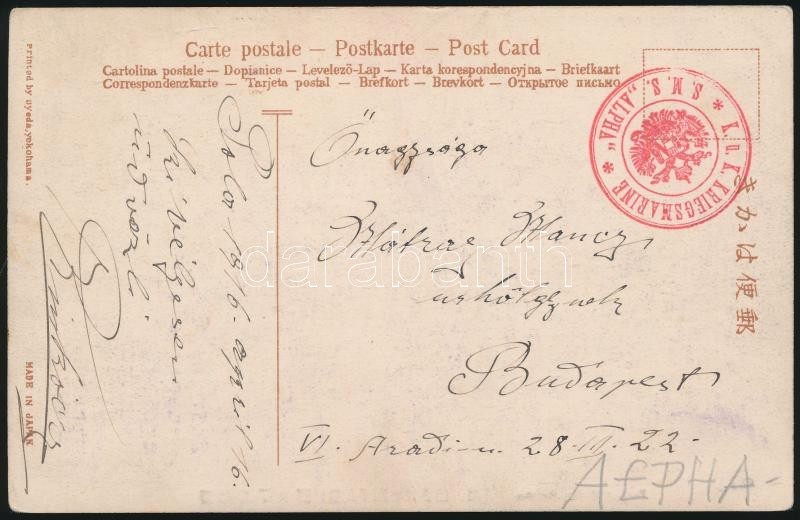 Carte postale — Postkarte — Post Card
Cartolina postale — Dopisnice — Levelező-Lap — Karta korespondencyjna — Briefkaart
Correspondenzkarte — Tarjeta postal — Brefkort — Brevkort — Открытое письмо
Printed by uyeda, yokohama.
MADE IN JAPAN
きかは便郵
K. u. K. KRIEGSMARINE
S. M. S. „ALPHA"
Pola 1916. april 16.
Szívélyesen
üdvözli
Őnagysága
Mátray Manczi
urhölgynek
Budapest
VI. Aradi-u. 28. III. 22.
AEPHA-
darabanth